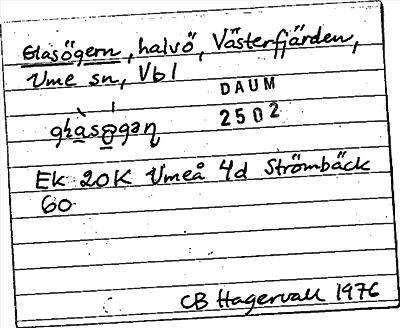 Glasögern, halvö, Västerfjärden,
Ume sn, Vbl
DAUM
2502
Ek 20K Umeå 4d Strömbäck
60
CB Hagervall 1976